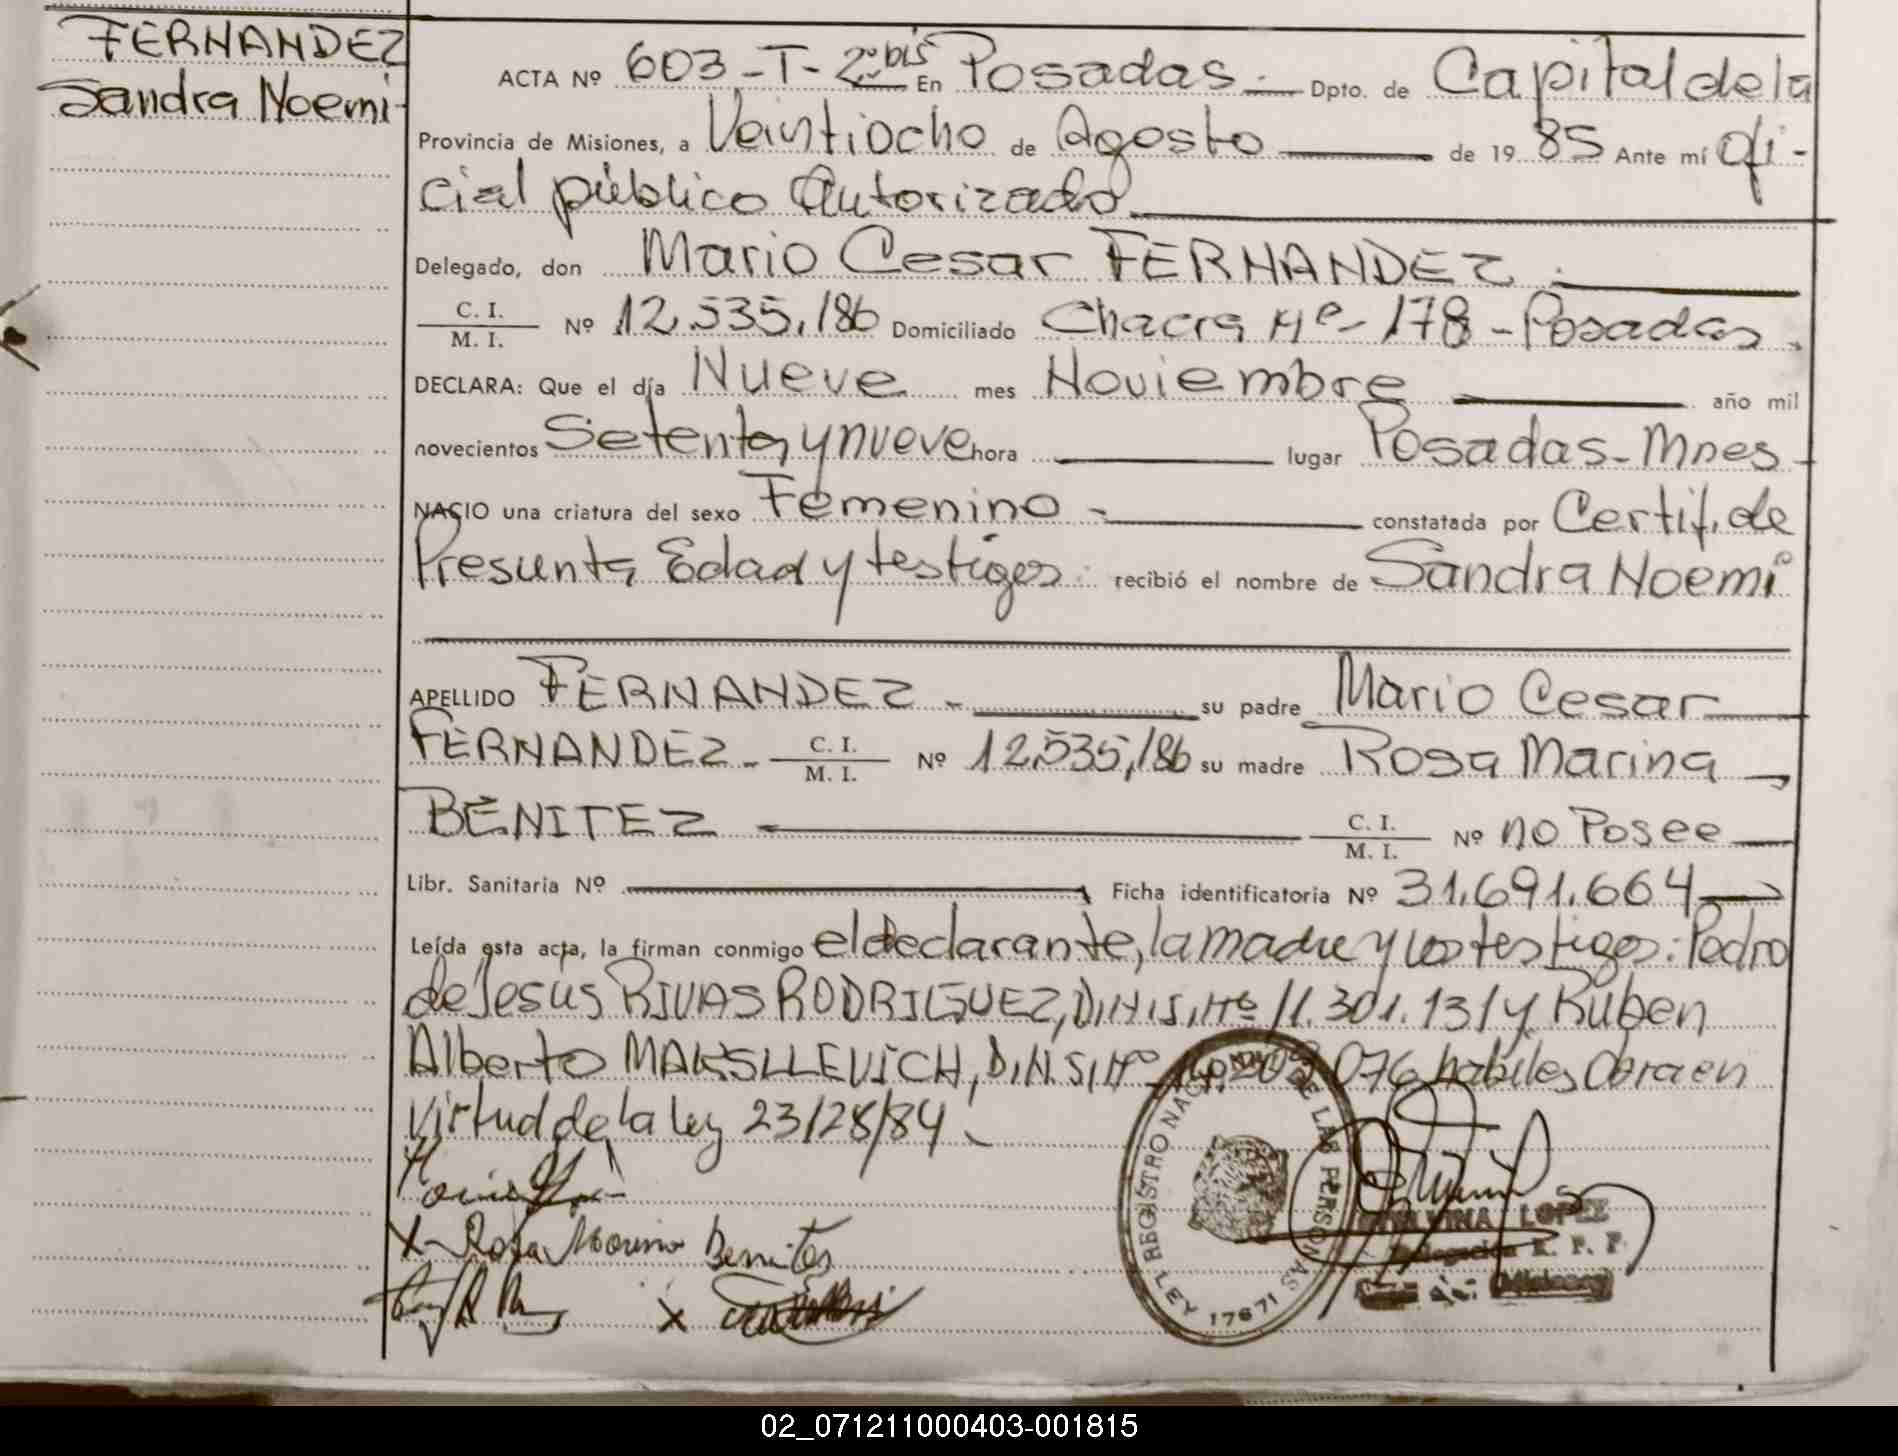 FERNANDEZ
Sandra Noemi-
ACTA Nº 603-T-2º bis En Posadas.- Dpto. de Capital de la
Provincia de Misiones, a Veintiocho de Agosto de 1985 Ante mí ofi-
cial público Autorizado
Delegado, don Mario Cesar FERNANDEZ.
C. I.
M. I. Nº 12.535.186 Domiciliado Chacra Nº- 178-Posadas.
DECLARA: Que el día Nueve mes Noviembre año mil
novecientos Setenta y nueve hora lugar Posadas-Mnes-
NACIO una criatura del sexo Femenino - constatada por Certif. de
Presunta Edad y testigos. recibió el nombre de Sandra Noemi
APELLIDO FERNANDEZ - su padre Mario Cesar
FERNANDEZ- C. I. M. I. Nº 12.535.186 su madre Rosa Marina
BENITEZ - C. I. M. I. Nº no Posee
Libr. Sanitaria Nº Ficha identificatoria Nº 31.691.664
Leída esta acta, la firman conmigo el declarante, la madre y los testigos: Pedro
de Jesus RIVAS RODRIGUEZ, D.N.I, Nº 11.301.131 y Ruben
Alberto D.N.I, Nº 076 habiles Obra en
Virtud de la ley 23/28/84.
X- Rosa Marina Benites
X
REGISTRO NACIONAL DE LAS PERSONAS
LEY 17671
LOPEZ
R. P. P.
(Misiones)
02_071211000403-001815